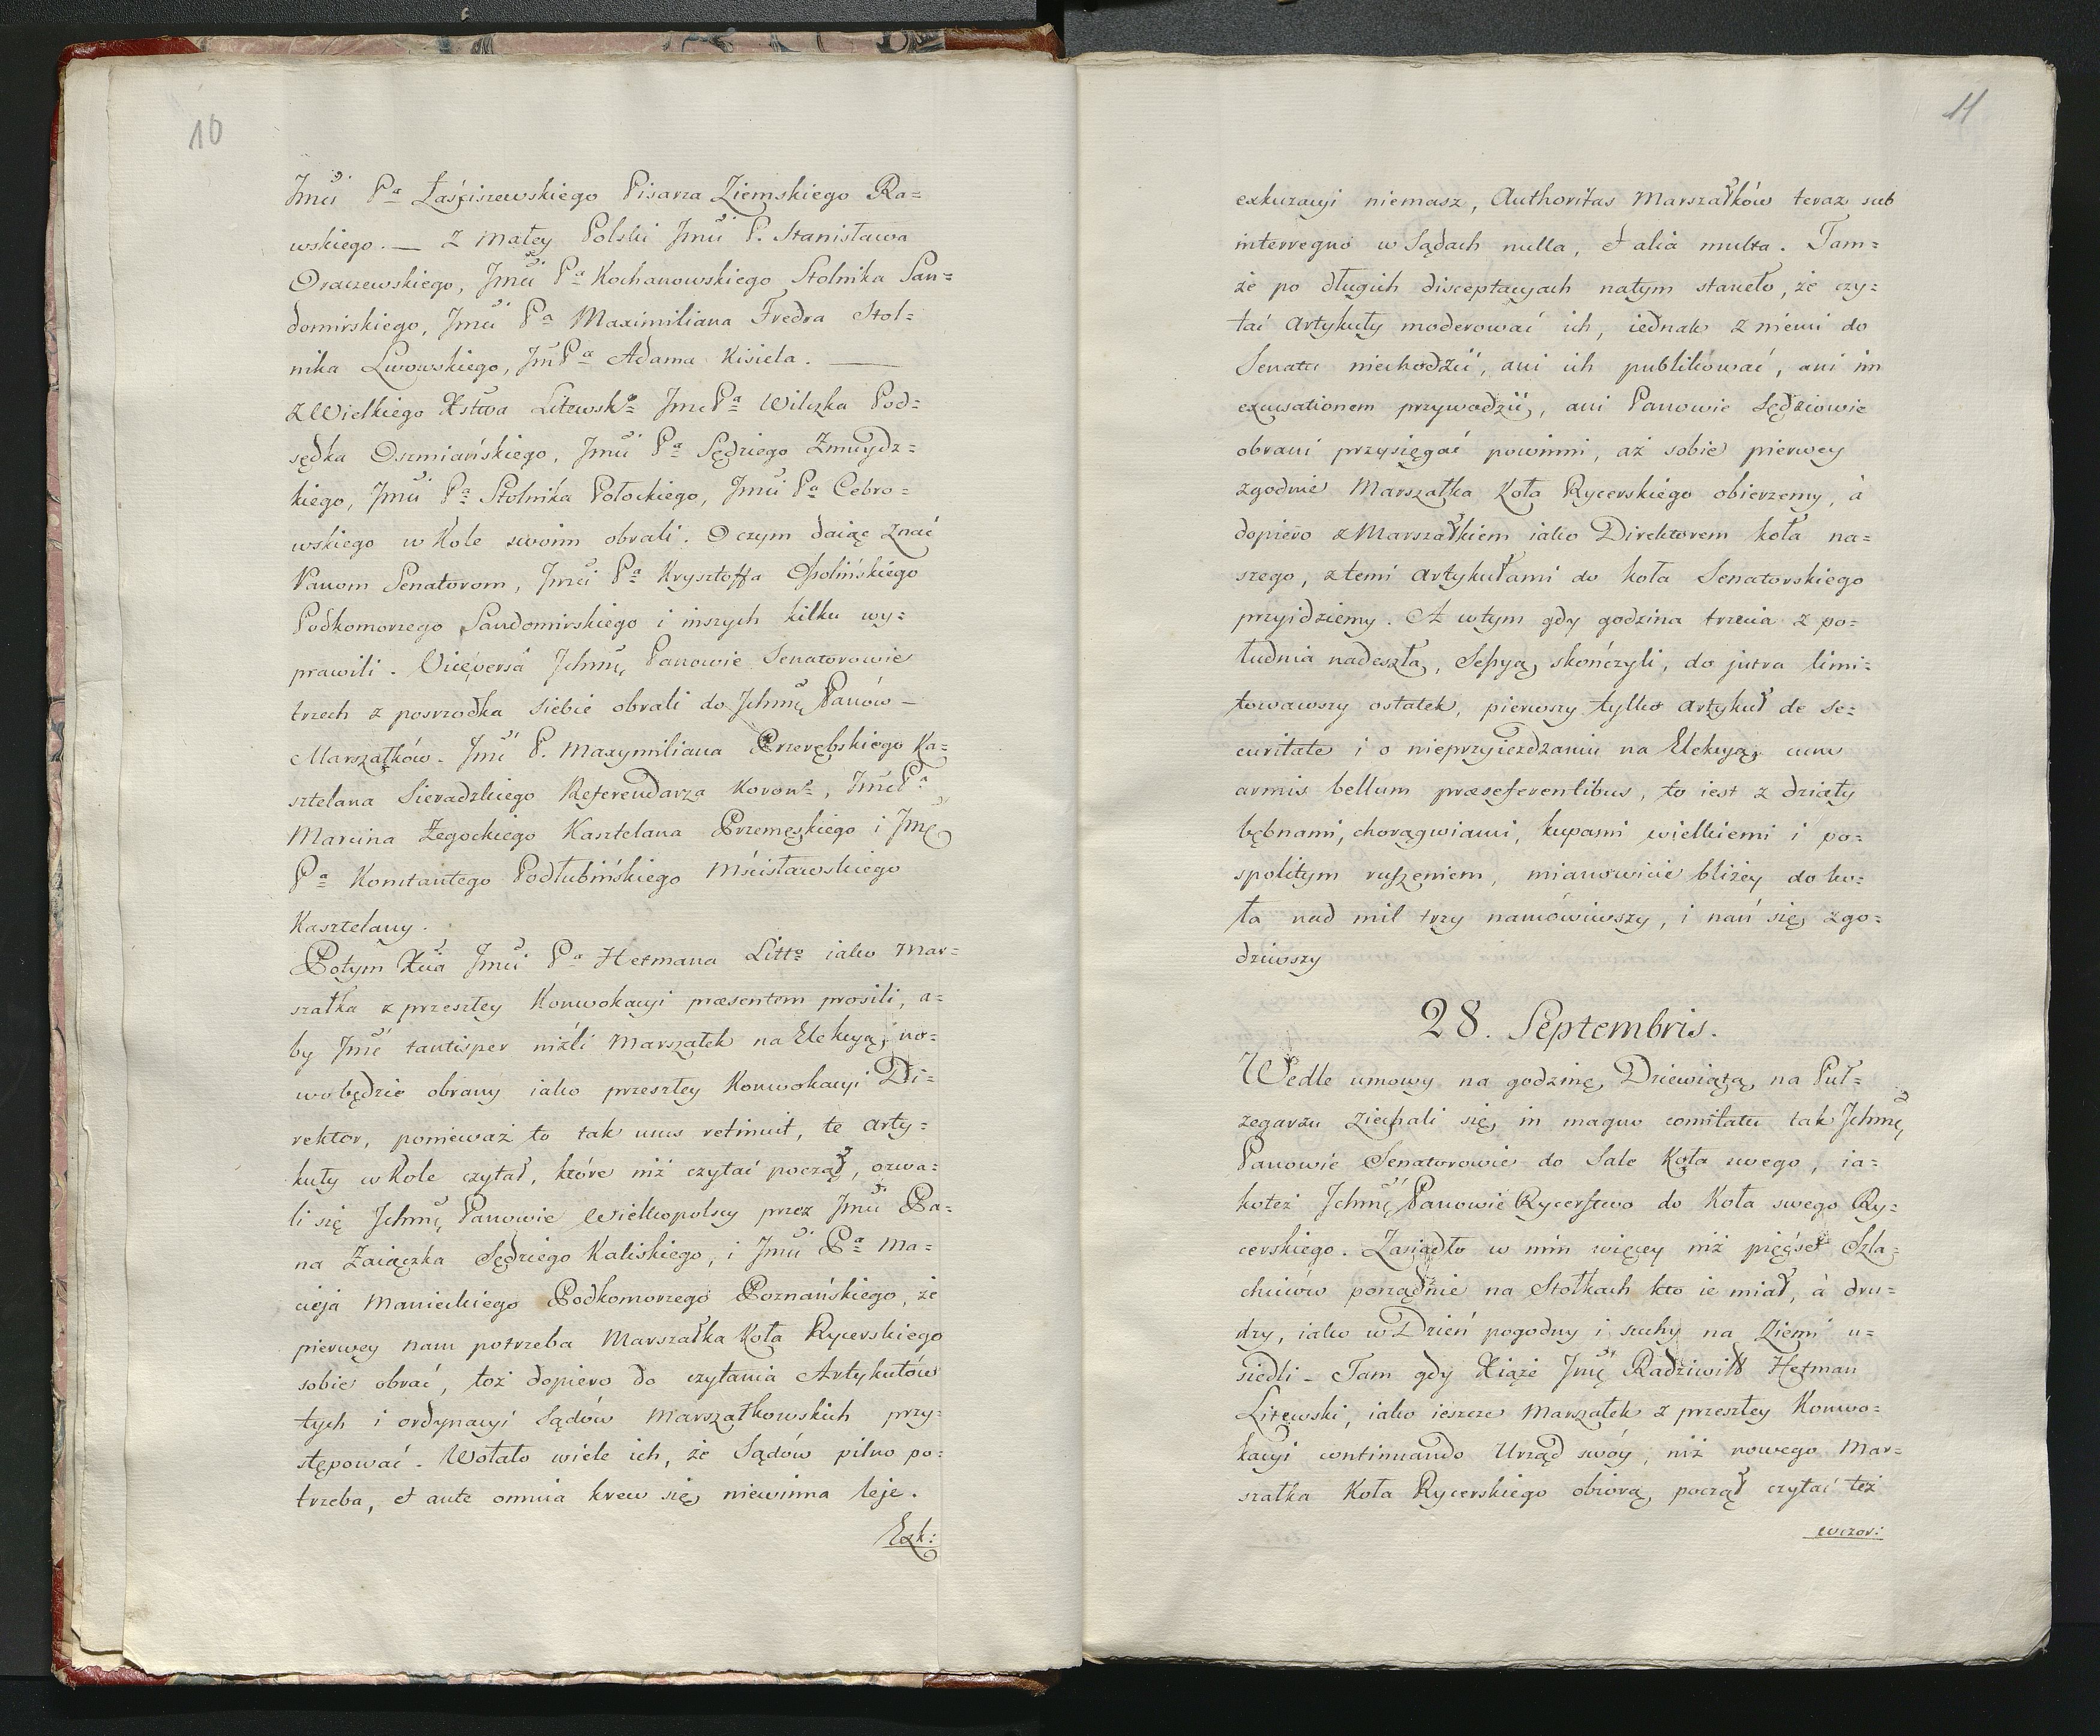 10
Jmci Pa Łaściszewskiego Pisarza Ziemskiego Ra=
wskiego. — Z małey Polski Jmci P. Stanisława
Oraczewskiego, Jmci Pa Kochanowskiego Stolnika San=
domirskiego, Jmci Pa Maximiliana Fredra Stol=
nika Lwowskiego, JmPa Adama Kisiela. —
Z Wielkiego Xstwa Litewsko JmcPa Wilczka Pod=
sędka Oszmiańskiego, Jmci Pa Sędziego Zmuydz=
kiego, Jmci Pa Stolnika Połockiego, Jmci Pa Cebro=
wskiego w Kole swoim obrali. O czym daiąc znać
Panom Senatorom, Jmci Pa Krysztoffa Opolińskiego
Podkomorzego Sandomirskiego i inszych kilku wy=
prawili. Viceversa Jchmć Panowie Senatorowie
trzech z posrzodka siebie obrali do Jchmć Panów —
Marszałków. Jmć P. Maxymiliana Przerębskiego Ka=
sztelana Sieradzkiego Referendarza Koronn, JmcPa
Marcina Żegockiego Kasztelana Przemęskiego i Jmć
Pa Konstantego Podłubińskiego Mścisławskiego
Kasztelany.
Potym Xcia Jmci Pa Hetmana Litto iako Mar=
szałka z przeszłey Konwokacyi præsentem prosili, a=
by Jmć tantisper niżli Marszałek na Elekcyą no=
wo będzie obrany iako przeszłey Konwokacyi Di=
rektor, ponieważ to tak usus retinuit, te arty=
kuły w Kole czytał, które niż czytać począł, ozwa=
li się Jchmć Panowie Wielkopolscy przez Jmci Pa=
na Zaiączka Sędziego Kaliskiego, i Jmci Pa Ma=
cieja Manieckiego Podkomorzego Poznańskiego, że
pierwey nam potrzeba Marszałka Koła Rycerskiego
sobie obrać, toż dopiero do czytania Artykułów
tych i ordynacyi Sądów Marszałkowskich przy=
stępować. Wołało wiele ich, że Sądów pilno po=
trzeba, et ante omnia krew się niewinna leje.
Exk:
11
exkuzacyi niemasz, Authoritas Marszałków teraz sub
interregno w Sądach nulla, et alia multa. Tam=
że po długich disceptacyach natym staneło, że czy=
tać artykuły moderować ich, iednak z niemi do
Senatu niechodzić, ani ich publikować, ani im
exequationem przywodzić, ani Panowie Sędziowie
obrani przysięgać powinni, aż sobie pierwey
zgodnie Marszałka Koła Rycerskiego obierzemy, à
dopiero z Marszałkiem iako Direktorem koła na=
szego, z temi artykułami do koła Senatorskiego
przyidziemy. A wtym gdy godzina trzecia z po=
łudnia nadeszła, Sessyą skończyli, do jutra limi=
towawszy ostatek, pierwszy tylko artykuł de se=
curitate i o nieprzyiezdzaniu na Elekcyą cum
armis bellum præseferentibus, to iest z działy
bębnami, chorągwiami, kupami wielkiemi i po=
spolitym ruszeniem, mianowicie bliżey do ko=
ła nad mil trzy namówiwszy, i nań się zgo=
dziwszy
28. Septembris.
Wedle umowy na godzinę Dziewiątą na Puł=
zegarzu ziechali się in magno comitatu tak Jchmć
Panowie Senatorowie do Sale Koła swego, ia=
koteż Jchmć Panowie Rycerstwo do Koła swego Ry=
cerskiego. Zasiadło w nim więcey niż pięćset Szla=
chciców porządnie na Stołkach kto ie miał, à dru=
dzy, iako w Dzień pogodny i suchy na Ziemi u=
siedli — Tam gdy Xiąże Jmć Radziwiłł Hetman
Litewski, iako ieszcze Marszałek z przeszłey Konwo=
kacyi continuando Urząd swóy, niż nowego Mar=
szałka Koła Rycerskiego obiorą, począł czytać też
wczor: